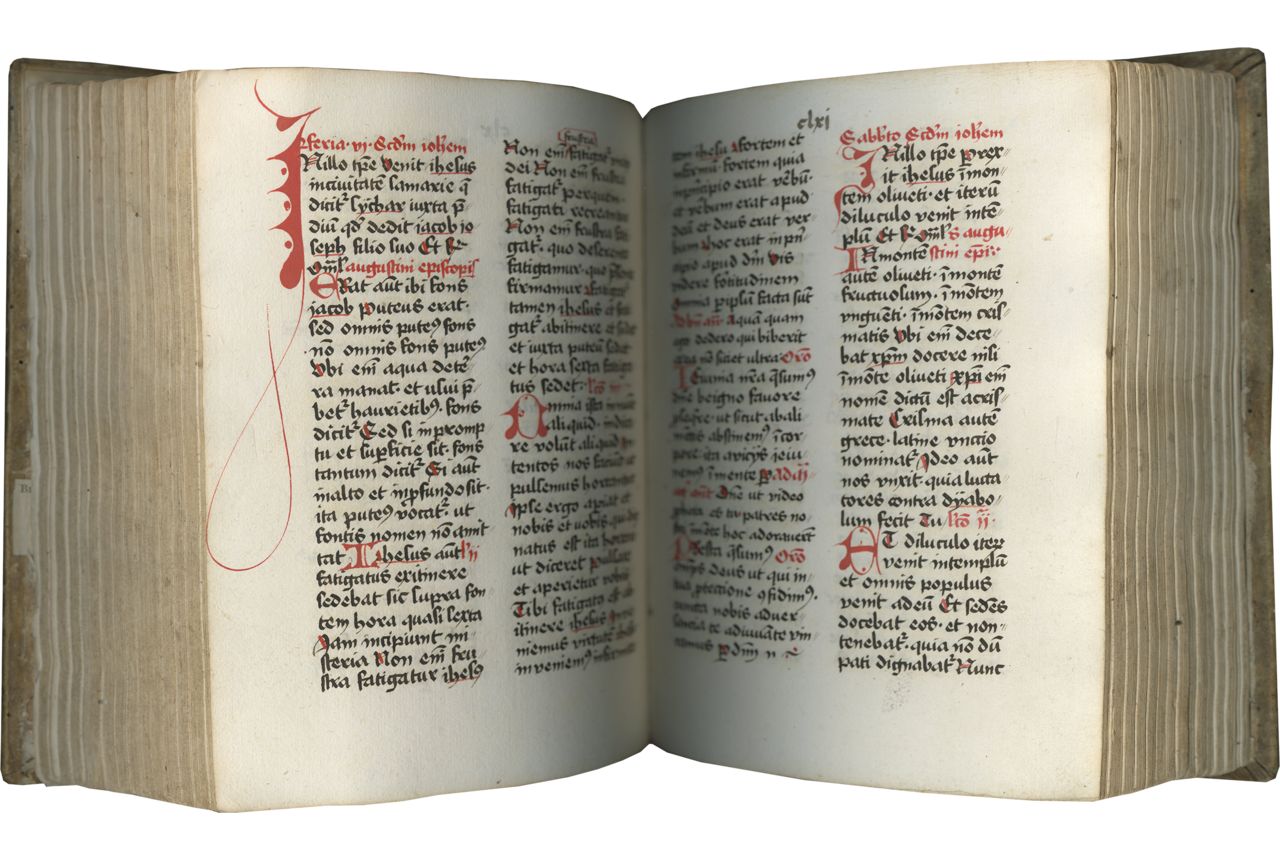 feria vi Scdm ioħem
N illo tpe venit ihesus
inciuitatem samarie q̄
dicit᷑ sychar iuxta p̄
diū qd̕ dedit iacob io
seph filio suo Et R̄
Oml̕ augustini episcopis
ERat aut ibi fons
iacob Puteus erat·
sed omnis puteꝰ fons
nō omnis fons puteꝰ
Vbi em̄ aqua detēr
ra manat· et usui p̄
bet᷑ haurietibꝫ· fons
dicit᷑ Sed si inpromp
tu et suꝑficie sit· fons
tantum dicit᷑ Si aut
inalto et inꝓfundo sit·
ita puteꝰ vocat᷑· ut
fontis nomen nō amit
tat Ihesus aut l̕ ij
fatigatus exitinere
sedebat sic supra fon
tem hora quasi sexta
Iam incipiunt mi
steria Non em̄ fru
stra fatigatur ihesꝰ
frustra
Non em̄ fatigat᷑
dei Non em̄ frustra
fatigat᷑ per quem
fatigati recreantur
Non em̄ frustra fati
gat᷑· quo deserente
fatigamur· quo
firmamur fatigat᷑
tamen ihesus et
gat᷑ abitinere et
et iuxta puteū sedet
et hora sexta fatiga
tus sedet· lc̄o
Omnia ista innuūt
aliquid· indica
re volūt aliquid in
tentos nos faciūt
pulsemus hortantur
Ipse ergo apiat et
nobis et uobis qui
natus est ita hortari
ut diceret pulsate
et aperietur vobis
Tibi fatigato est ab
itinere ihesus
niemus virtutē ihesū
inveniemꝰ infirmum
clxi
tem ihesū fortem et
infirmū· fortem quia
inpncipio erat v̄bū·
et verbum erat apud
deū et deus erat ver
bum hoc erat inpn̄
cipio apud dm̄ Vis
videre fortitudinem
omnia p ipsum facta sūt
Ad bn̄ an̄ Aquā quam
ego dedero qui biberit
ex ea nō siciet ultra Orō
Ieiunia nr̄a q̄sumꝰ
dn̄e beigno fauore
ꝓseq̄re ut sicut abali
mētis abstinemꝰ īcor
pore ita avicijs ieiu
nemꝰ īmente p Ad m̄
at ant̕ Dn̄e ut video
ꝓpheta es tu patres no
ſtri īmōte hoc adorauerūt
Presta q̄sumꝰ Orō
omp̄s deus ut qui in
tua ꝓtectione ꝯfidimꝰ
cuncta nobis aduer
santia te adiuuāte vin
camus P dm̄ n
Sabb̄to Scdm ioħem
IN illo tpe Prex
it ihesus īmon
tem oliueti· et iterū
diluculo venit intē
plū Et R̄ Oml̕ s augu
stini epī·
IN monte
autē oliueti· īmontē
fructuosum· īmōtem
vnguēti· īmōntem cris
matis Vbi em̄ dece
bat xp̄m docere nisi
īmōte oliueti Xp̄i em̄
nomē dictū est acris
mate Crisma autē
grece· latine vnctio
nominat᷑ Ideo aūt
nos vnxit· quia lucta
tores contra dyabo
lum fecit Tu lc̄o ij·
ET diluculo iter
venit intemplū
et omnis populus
venit adeū Et sedēs
docebat eos· et non
tenebat᷑· quia nō dū
pati dignabat᷑ Nunc